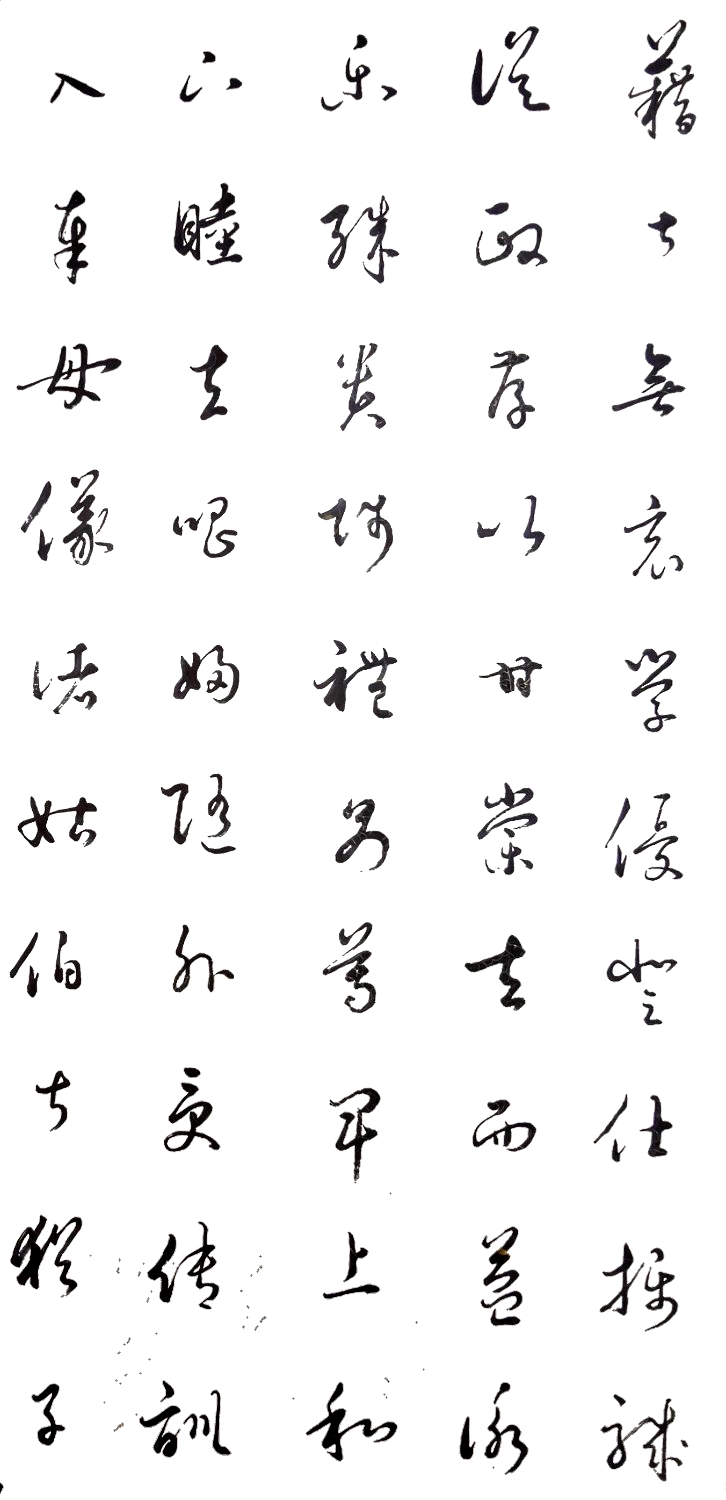 藉甚無竟學優登仕攝職
從政存以甘棠去而益詠
樂殊貴賤禮別尊卑上和
下睦夫唱婦隨外受傅訓
入奉母儀諸姑伯叔猶子